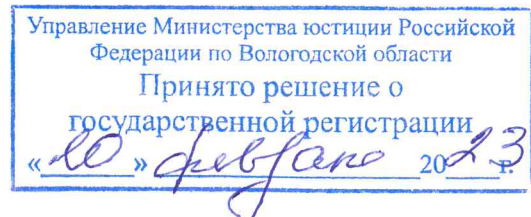 Управление Министерства юстиции Российской
Федерации по Вологодской области
Принято решение о
государственной регистрации
«20» февраля 2023 г.